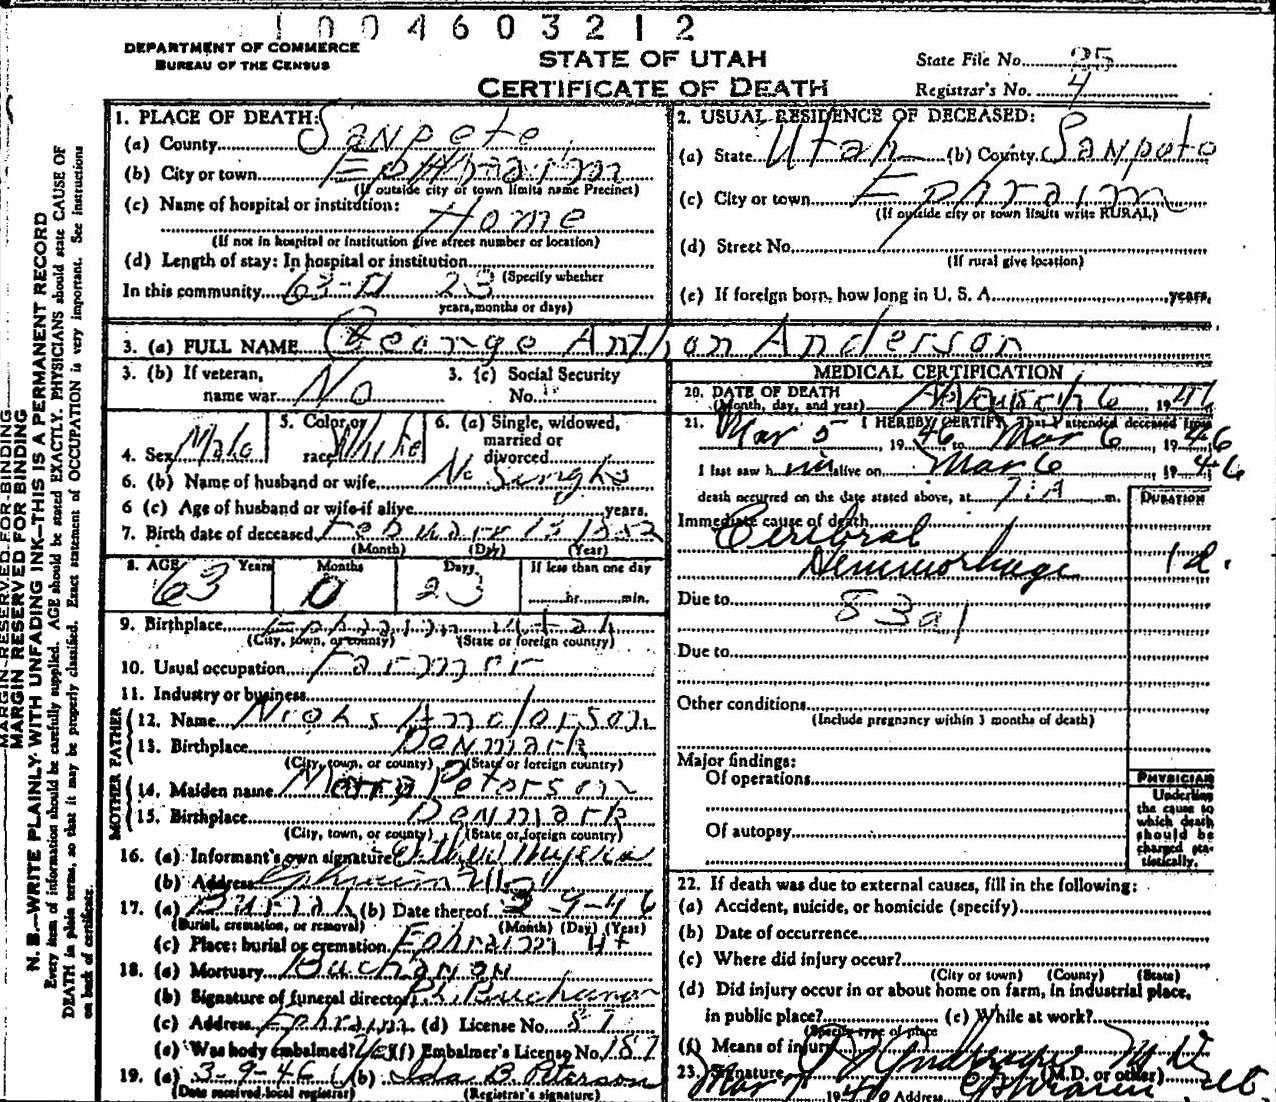 1004603212
DEPARTMENT OF COMMERCE
BUREAU OF THE CENSUS
STATE OF UTAH
CERTIFICATE OF DEATH
State File No. 25
Registrar's No. 4
MARGIN RESERVED FOR BINDING
MARGIN RESERVED FOR BINDING
N. B.—WRITE PLAINLY WITH UNFADING INK—THIS IS A PERMANENT RECORD
Every item of information should be carefully supplied. AGE should be stated EXACTLY. PHYSICIANS should state CAUSE OF
DEATH in plain terms, so that it may be properly classified. Exact statement of OCCUPATION is very important. See instructions
on back of certificate.
1. PLACE OF DEATH:
(a) County Sanpete
(b) City or town Ephraim
(If outside city or town limits name Precinct)
(c) Name of hospital or institution:
Home
(If not in hospital or institution give street number or location)
(d) Length of stay: In hospital or institution
(Specify whether
In this community 63-0 23
years, months or days)
2. USUAL RESIDENCE OF DECEASED:
(a) State Utah (b) County Sanpete
(c) City or town Ephraim
(If outside city or town limits write RURAL)
(d) Street No.
(If rural give location)
(e) If foreign born, how long in U. S. A. years,
3. (a) FULL NAME George Anthon Anderson
3. (b) If veteran,
name war No
3. (c) Social Security
No.
4. Sex Male
5. Color or
race White
6. (a) Single, widowed,
married or
divorced
6. (b) Name of husband or wife
6 (c) Age of husband or wife if alive years,
7. Birth date of deceased
(Month) (Day) (Year)
8. AGE Years Months Days If less than one day
63 0 23 hr. min.
9. Birthplace Ephraim Utah
(City, town, or county) (State or foreign country)
10. Usual occupation Farmer
11. Industry or business
FATHER
12. Name Niels Anderson
13. Birthplace Denmark
(City, town, or county) (State or foreign country)
MOTHER
14. Maiden name Mary Peterson
15. Birthplace Denmark
(City, town, or county) (State or foreign country)
16. (a) Informant's own signature
(b) Address Ephraim
17. (a) Burial (b) Date thereof 3 9-46
(Burial, cremation, or removal) (Month) (Day) (Year)
(c) Place: burial or cremation Ephraim Ut
18. (a) Mortuary Buchanan
(b) Signature of funeral director Buchanan
(c) Address Ephraim (d) License No. 57
(e) Was body embalmed? Yes (f) Embalmer's License No. 187
19. (a) 3-9-46 (b) Ida B. Peterson
(Date received local registrar) (Registrar's signature)
MEDICAL CERTIFICATION
20. DATE OF DEATH March 6 1946
(Month, day, and year)
21. I HEREBY CERTIFY, That I attended deceased from
Mar 5 1946 to Mar 6 1946
I last saw him alive on Mar 6 1946
death occurred on the date stated above, at 7:A m.
DURATION
Immediate cause of death
Cerebral
Hemmorhage 1 d.
Due to 83a1
Due to
Other conditions
(Include pregnancy within 3 months of death)
Major findings:
Of operations
Of autopsy
PHYSICIAN
Underline
the cause to
which death
should be
charged sta-
tistically.
22. If death was due to external causes, fill in the following:
(a) Accident, suicide, or homicide (specify)
(b) Date of occurrence
(c) Where did injury occur?
(City or town) (County) (State)
(d) Did injury occur in or about home on farm, in industrial place,
in public place? (e) While at work?
(Specify type of place
(f) Means of injury
23. Signature (M.D. or other)
Mar 1946 Address Ephraim